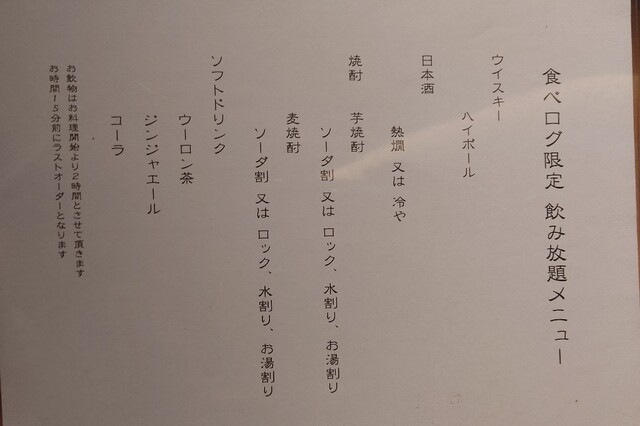 食べログ限定 飲み放題メニュー
ウイスキー
ハイボール
日本酒
熱燗 又は 冷や
焼酎 芋焼酎
ソーダ割 又は ロック、水割り、お湯割り
麦焼酎
ソーダ割 又は ロック、水割り、お湯割り
ソフトドリンク
ウーロン茶
ジンジャエール
コーラ
お飲物はお料理開始より2時間とさせて頂きます
お時間15分前にラストオーダーとなります